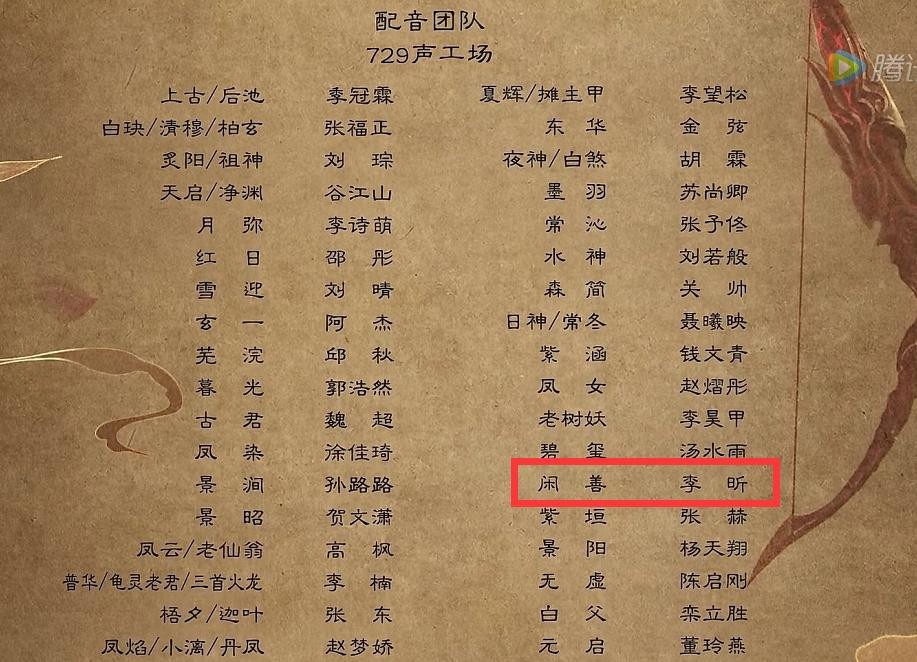 配音团队
729声工场
上古/后池 李冠霖 夏辉/摊主甲 李望松
白玦/清穆/柏玄 张福正 东华 金弦
炙阳/祖神 刘琮 夜神/白煞 胡霖
天启/净渊 谷江山 墨羽 苏尚卿
月弥 李诗萌 常沁 张予佟
红日 邵彤 水神 刘若般
雪迎 刘晴 森简 关帅
玄一 阿杰 日神/常冬 聂曦映
芜浣 邱秋 紫涵 钱文青
暮光 郭浩然 凤女 赵熠彤
古君 魏超 老树妖 李昊甲
凤染 徐佳琦 碧玺 汤水雨
景涧 孙路路 闲善 李昕
景昭 贺文潇 紫垣 张赫
凤云/老仙翁 高枫 景阳 杨天翔
普华/龟灵老君/三首火龙 李楠 无虚 陈启刚
梧夕/迦叶 张东 白父 栾立胜
凤焰/小漓/丹凤 赵梦娇 元启 董玲燕